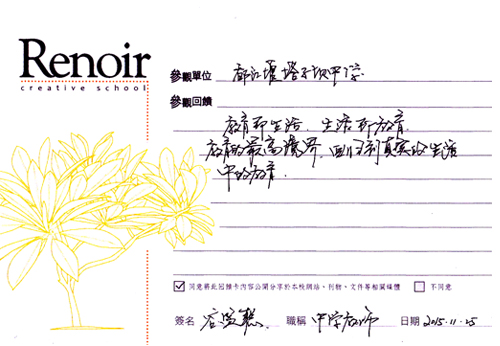 Renoir
creative school
參觀單位 都江堰塔子坝中学
參觀回饋
教育即生活, 生活即教育.
教育的最高境界, 回归到真实的生活
中的教育.
☑ 同意將此回饋卡內容公開分享於本校網站、刊物、文件等相關媒體 □ 不同意
簽名 職稱 中学教师 日期 2015.11.25